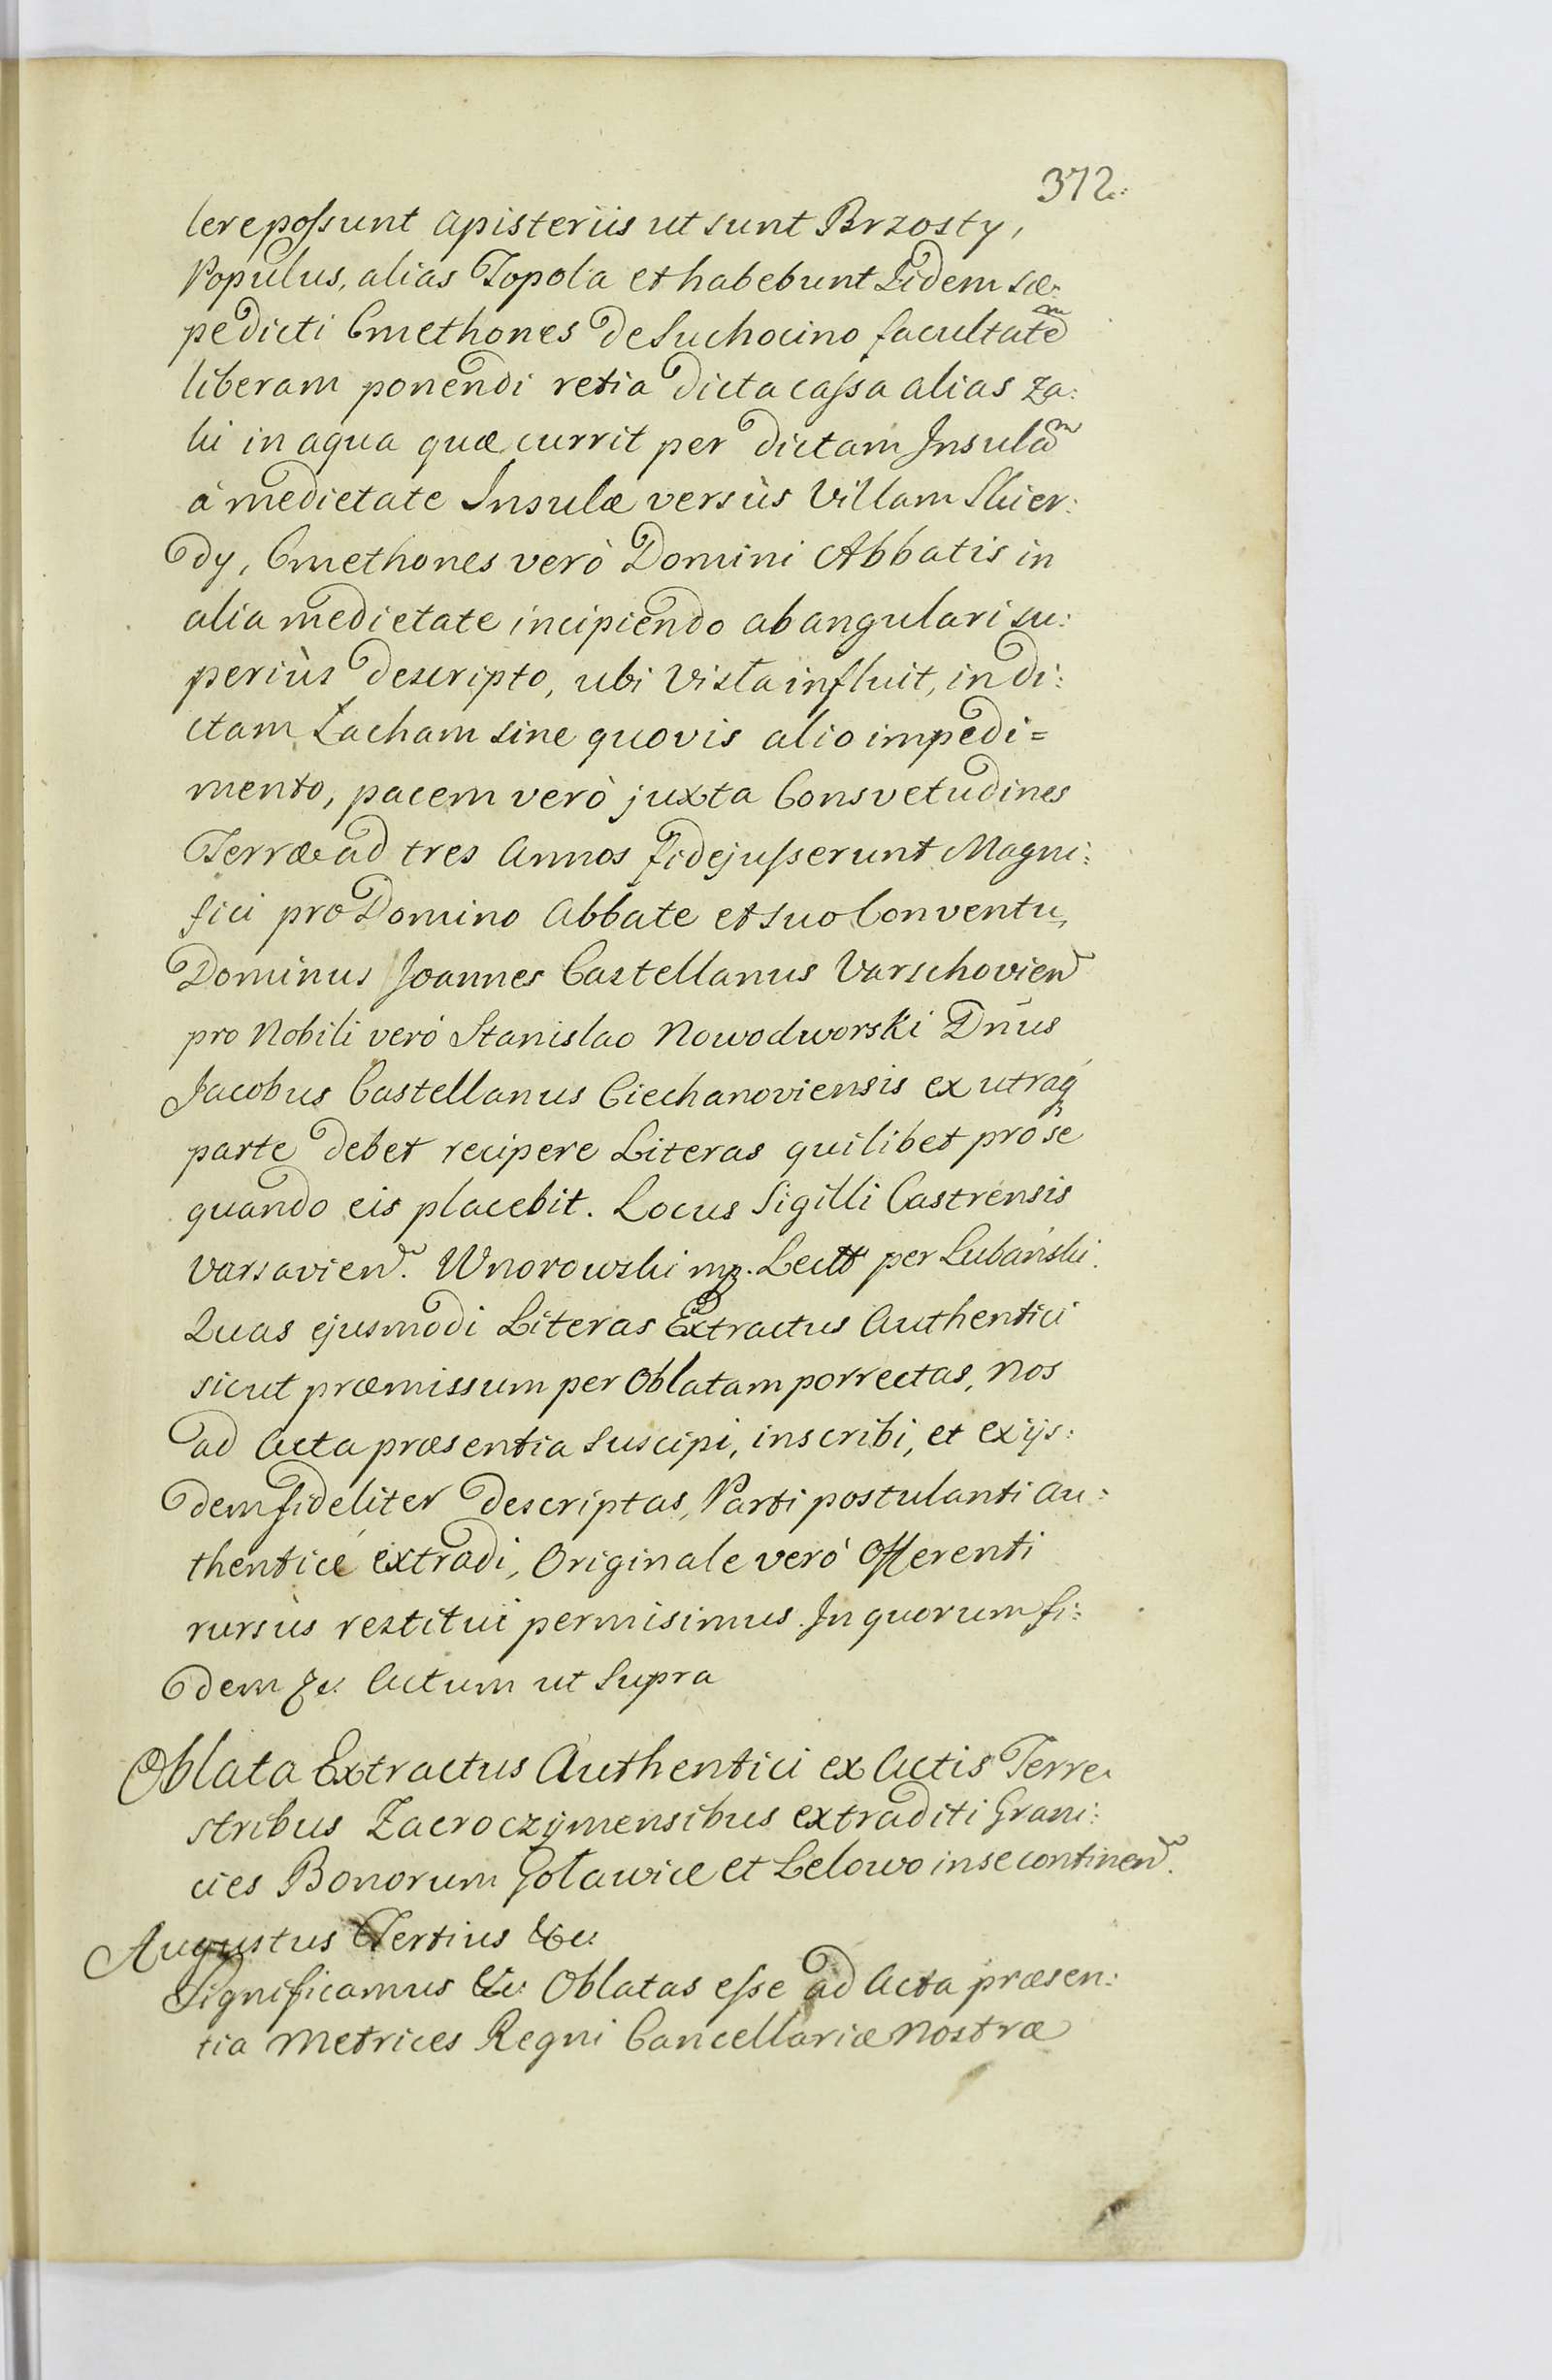 372.
lere poſsunt apisteriis ut sunt Brzosty,
Populus, alias Topola et habebunt Iidem sæ-
pe dicti Cmethones de Suchocino facultatem
liberam ponendi retia dicta caſsa alias Za:
ki in aqua quæ currit per dictam Insulam
à medietate Insulæ versùs Villam Skier:
dy, Cmethones verò Domini Abbatis in
alia medietate incipiendo ab angulari su:
periùs descripto, ubi Visla influit, in di:
ctam Łacham sine quovis alio impedi=
mento, pacem verò juxta Consvetudines
Terræ ad tres Annos fidejuſserunt Magni:
fici pro Domino Abbate et suo Conventu,
Dominus Joannes Castellanus Varschovien
pro Nobili verò Stanislao Nowodworski Dnus
Jacobus Castellanus Ciechanoviensis ex utraq
parte debet recipere Literas quilibet pro se
quando eis placebit. Locus Sigilli Castrensis
Varsavien. Wnorowski mp. Lectt per Lubański.
Quas ejusmodi Literas Extractus Authentici
sicut præmissum per Oblatam porrectas, nos
ad Acta præsentia suscipi, inscribi, et ex ijs:
dem fideliter descriptas, Parti postulanti au:
thenticè extradi, Originale verò Offerenti
rursùs restitui permisimus. In quorum fi:
dem &c. Actum ut Supra
Oblata Extractus Authentici ex Actis Terre
stribus Zacroczymensibus extraditi Grani:
cies Bonorum Goławice et Lelowo in se continen.
Augustus Tertius &c.
Significamus &c. Oblatas eſse ad Acta præsen:
tia Metrices Regni Cancellariæ Nostræ